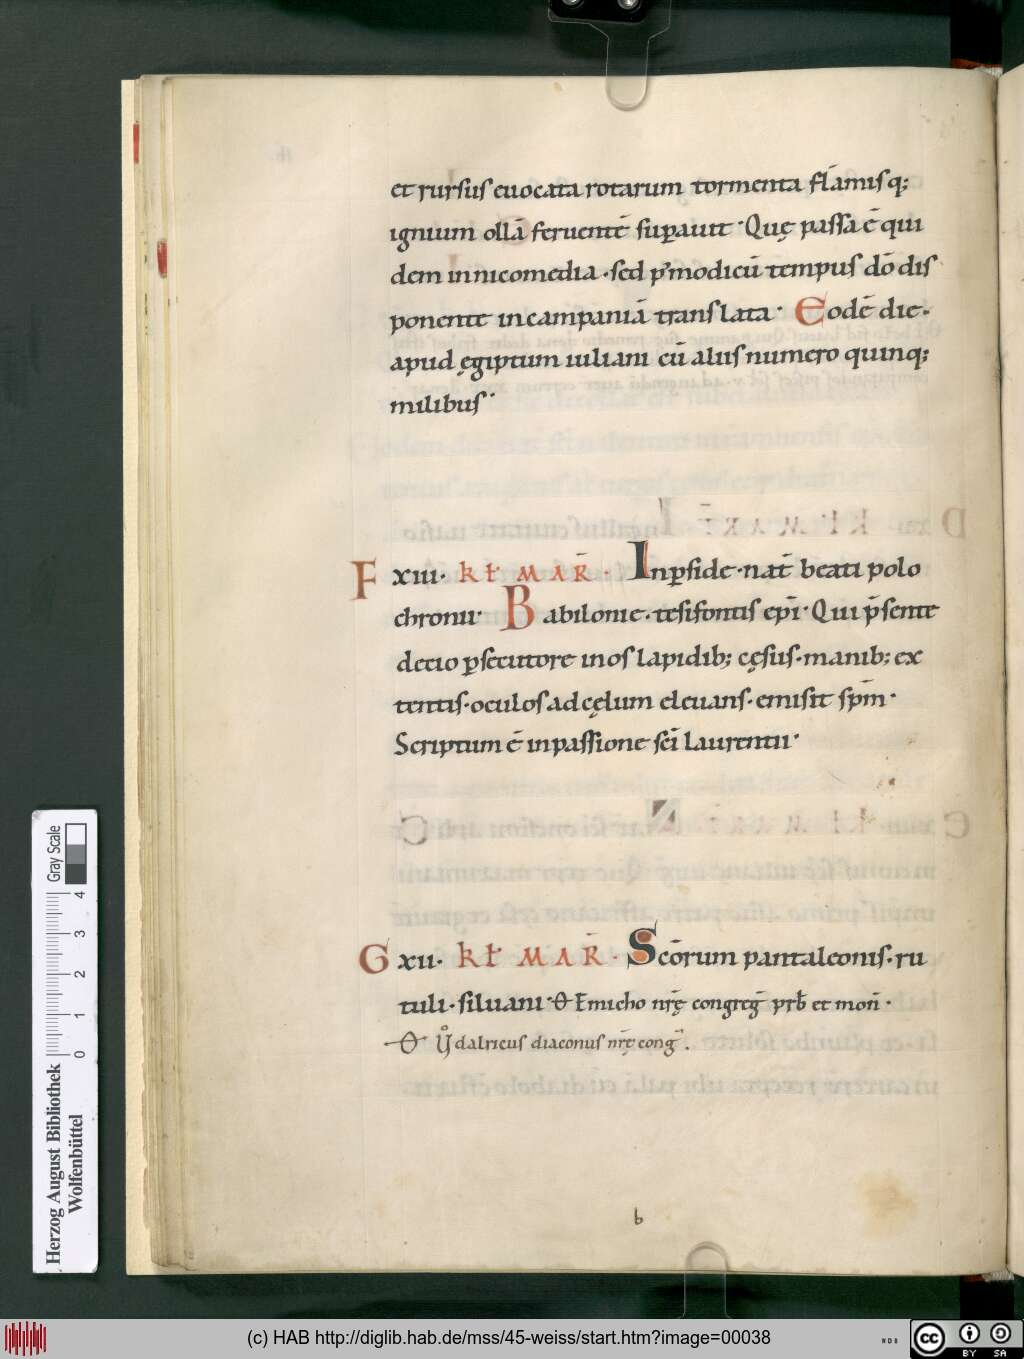 et rursus euocata rotarum tormenta flāmisq;
ignium ollā feruentē suꝑauit · Quę passa ē qui
dem innicomedia · sed p᷒ modicū tempus dō dis
ponente incampaniā translata · Eodē die ·
apud ęgiptum iuliani cū aliis numero quinq;
milibus ·
F xiii · kł MAR̄ · Inꝑside · nat̄ beati polo
chronii · Babilonie · tesifontis ep̄i · Qui p̄sente
decio ꝑsecutore in os lapidib; cęsus · manib; ex
tentis · oculos ad cęlum eleuans · emisit sp̄m ·
Scriptum ē inpassione sc̄i laurentii ·
G xii · kł MAR̄ · Sc̄orum pantaleonis · ru
tuli · siluani · Θ Emicho nr̄ę congreḡ prb̄ et mon̄ ·
Θ Vͦdalricus diaconus nr̄ę conḡ .
b
Herzog August Bibliothek
Wolfenbüttel
0 1 2 3 4
Gray Scale
(c) HAB http://diglib.hab.de/mss/45-weiss/start.htm?image=00038
WDB
cc
BY SA